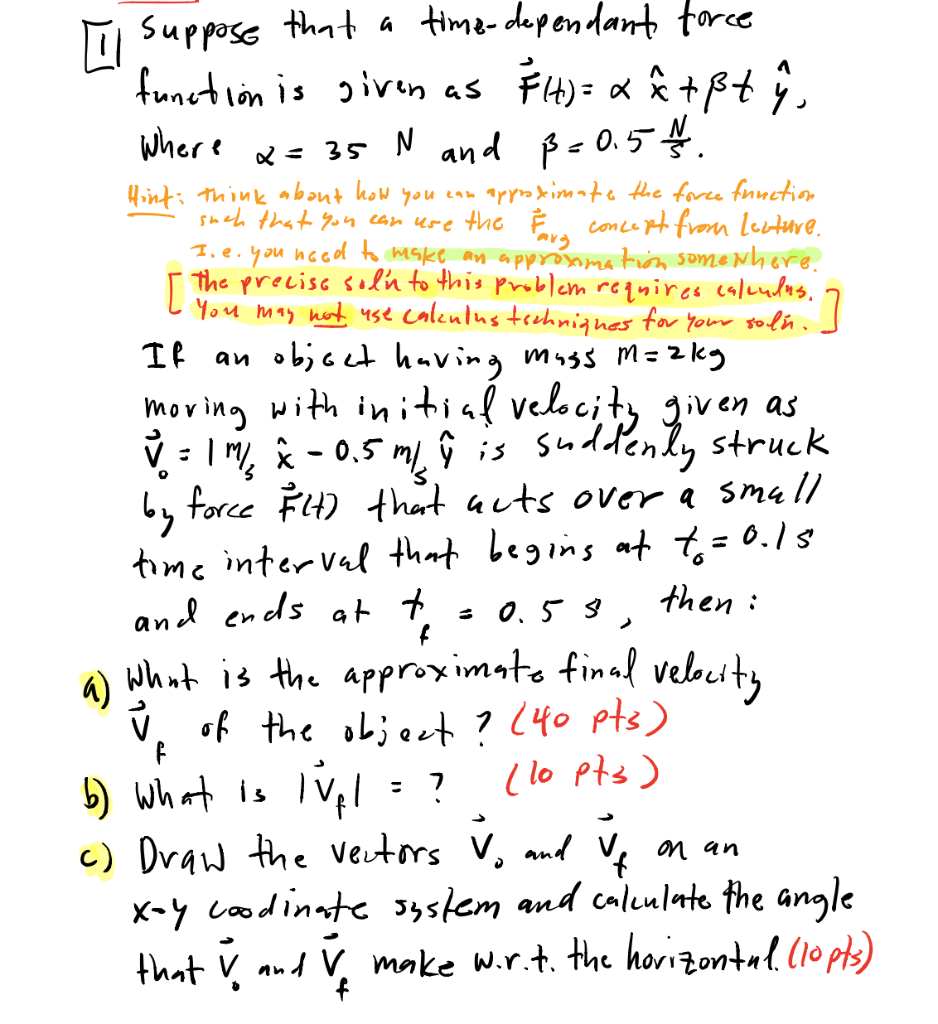 1 Suppose that a time-dependant force
function is given as F⃗(t) = α x̂ + βt ŷ,
Where α = 35 N and β = 0.5 N/s.
Hint: Think about how you can approximate the force function
such that you can use the F⃗avg concept from lecture.
I.e. you need to make an approximation somewhere.
[The precise sol'n to this problem requires calculus.
You may not use calculus techniques for your sol'n.]
If an object having mass m = 2 kg
moving with initial velocity given as
V⃗₀ = 1 m/s x̂ - 0.5 m/s ŷ is suddenly struck
by force F⃗(t) that acts over a small
time interval that begins at t₀ = 0.1 s
and ends at t_f = 0.5 s, then:
a) What is the approximate final velocity
V⃗_f of the object? (40 pts)
b) What is |V⃗_f| = ? (10 pts)
c) Draw the vectors V⃗₀ and V⃗_f on an
x-y coodinate system and calculate the angle
that V⃗₀ and V⃗_f make w.r.t. the horizontal. (10 pts)